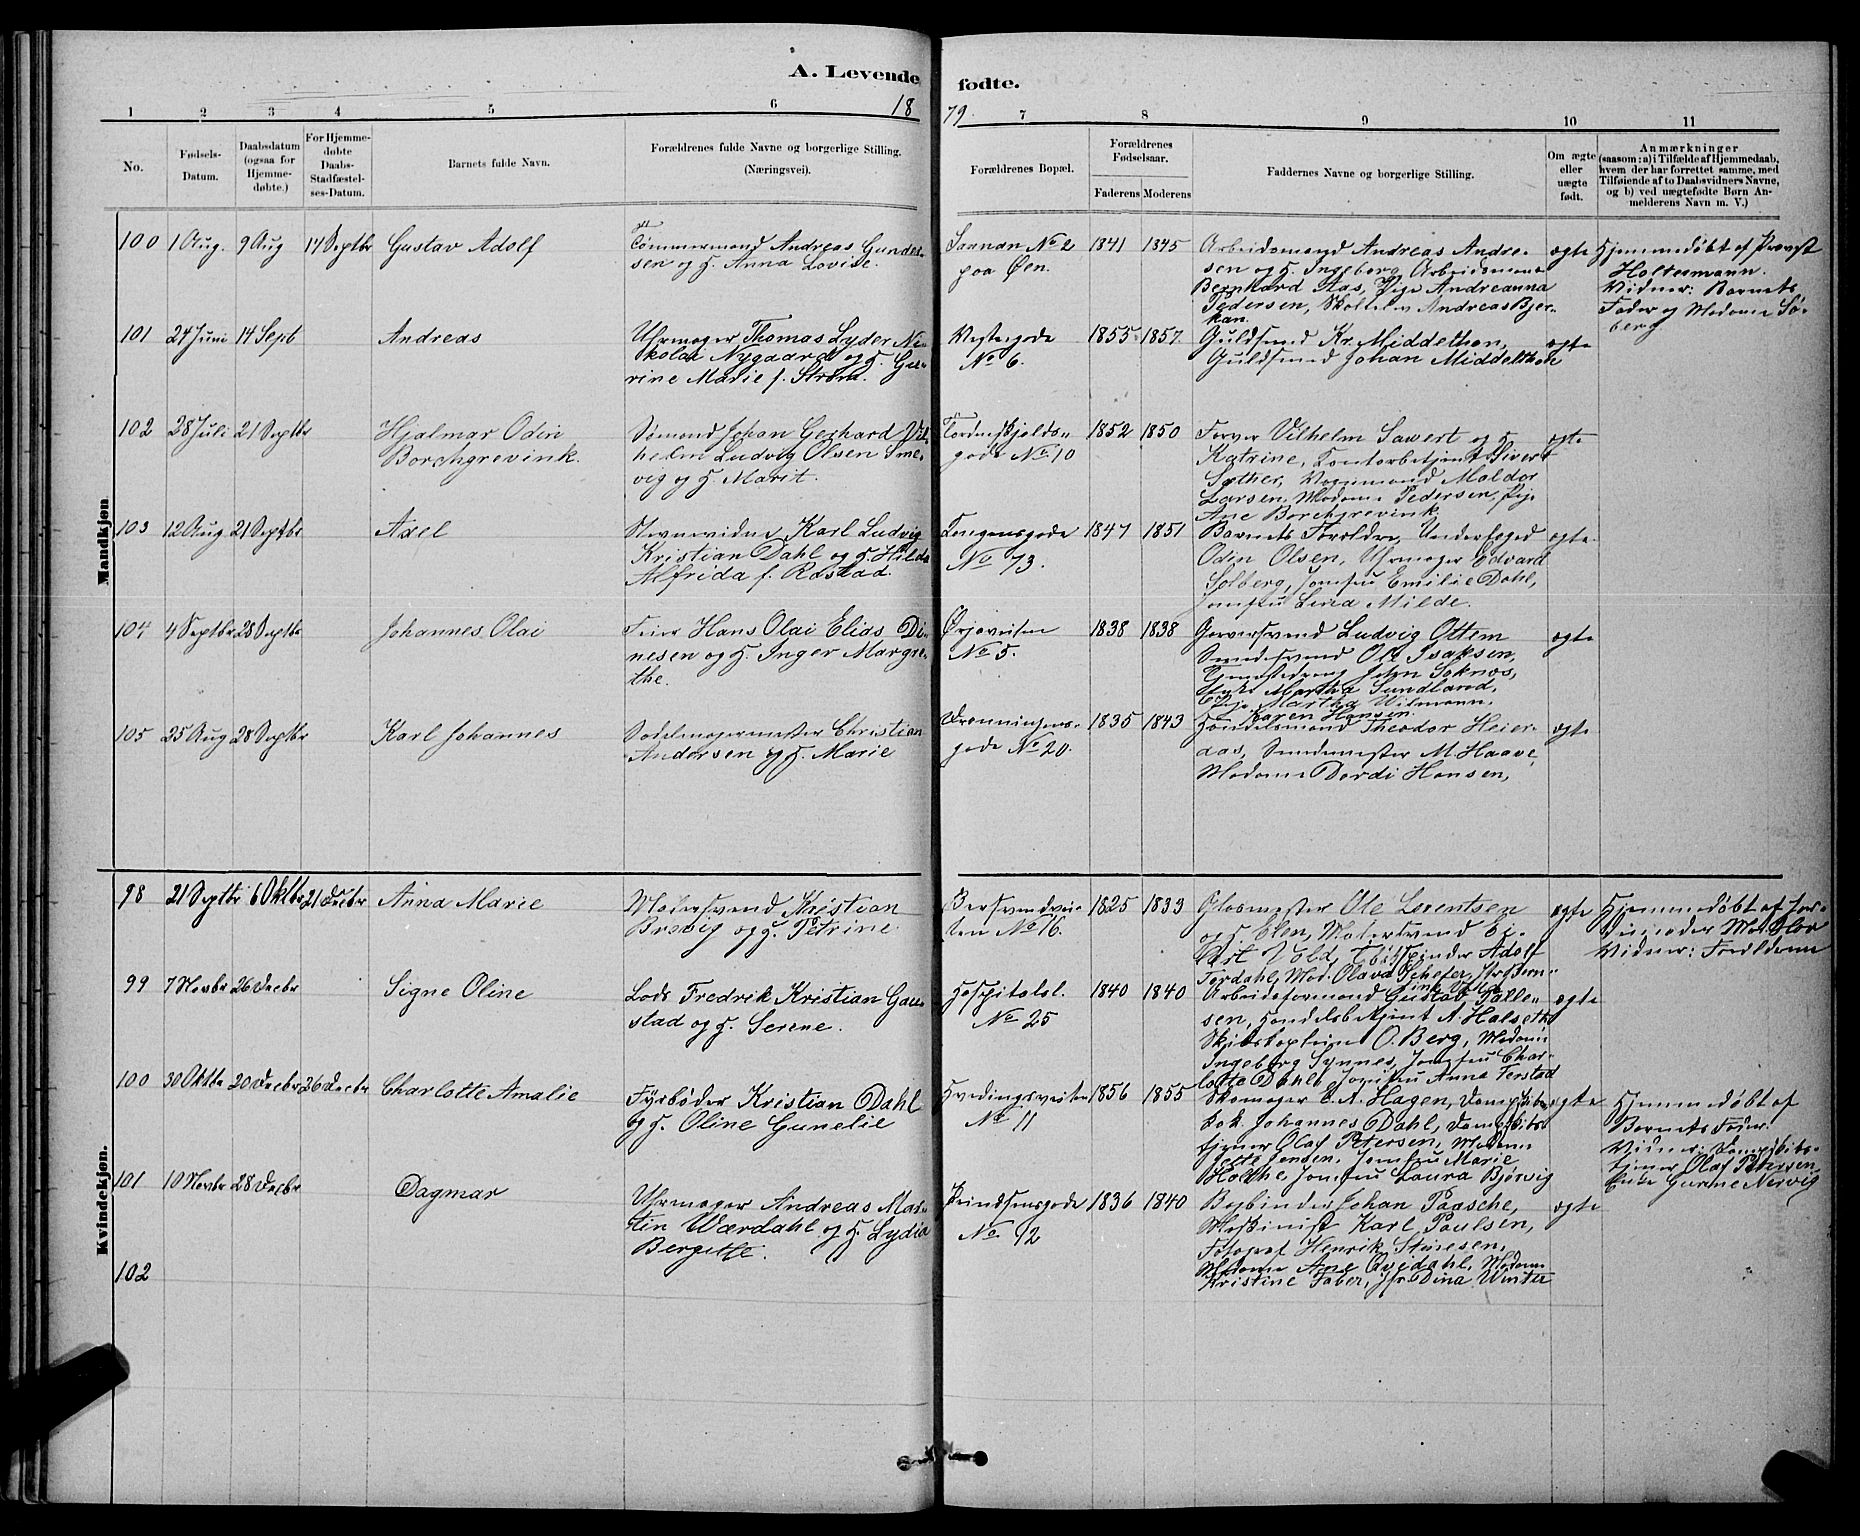 A. Levende fødte.
18 79.
1 2 3 4 5 6 7 8 9 10 11
No.
Fødsels-
Datum.
Daabsdatum
(ogsaa for
Hjemme-
døbte.)
For Hjemme-
døbte
Daabs-
Stadfæstel-
ses-Datum.
Barnets fulde Navn.
Forældrenes fulde Navne og borgerlige Stilling.
(Næringsvei).
Forældrenes Bopæl.
Forældrenes
Fødselsaar.
Faderens Moderens
Faddernes Navne og borgerlige Stilling.
Om ægte
eller
uægte
født.
Anmærkninger
(saasom: a) i Tilfælde af Hjemmedaab,
hvem der har forrettet samme, med
Tilføiende af to Daabsvidners Navne,
og b) ved uægtefødte Børn An-
melderens Navn m. V.)
Mandkjøn
100 1 Aug. 9 Aug 14 Septbr Gustav Adolf
Tømmermand Andreas Gunder-
sen og H. Anna Lovise.
Sannan No 2
paa Øen.
1841 1845
Arbeidsmand Andreas Andre-
sen og H. Ingeborg, Arbeidsmand
Bernhard Aas, Pige Andreanna
Pedersen, Andreas Bjer-
kan.
ægte
Hjemmedøbt af Provst
Holtermann.
Vidner: Barnets
Fader og Madame Sø-
berg
101 24 Juni 14 Sept Andreas
Uhrmager Thomas Lyder Ni-
kolai Nygaard og H. Gu-
rine Marie f. Strøm.
Vestergade
No 6.
1855 1857
Guldsmed Kr. Middelthon,
Guldsmed Johan Middelthon
ægte
102 28 Juli 21 Septbr Hjalmar Odin
Borchgrevink.
Sømand Johan Gerhard Vil-
helm Ludvig Olsen Sme-
vig og H. Marit.
Tordenskjolds-
gade No 10
1852 1850
Farver Vilhelm Sawert og H.
Katrine, Kontorbetjent Sivert
Sæther, Vognmand Maldor
Larsen, Madame Pedersen, Pige
Ane Borchgrevink.
ægte
103 12 Aug 21 Septbr Axel
Stevnevidne Karl Ludvig
Kristian Dahl og H. Hilda
Alfrida f. Røstad.
No 73.
1847 1851
Barnets Forældre, Underfoged
Odin Olsen, Uhrmager Edvard
Solberg, Jomfru Emilie Dahl,
Jomfru Lina Milde.
ægte
104 4 Septbr 28 Septbr Johannes Olai
Feier Hans Olai Elias Di-
nesen og H. Inger Margre-
the.
Ørjaveiten
No 5.
1838 1838
Garversvend Ludvig Ottem
Smedesvend Ole Isaksen,
John Soknæs,
Enke Martha Sundland,
Pige Martha Wismann,
Karen Hansen.
ægte
105 25 Aug 28 Septbr Karl Johannes
Sadelmagermester Christian
Andersen og H. Marie
Dronningens-
gade No 20.
1835 1843
Handelsmand Theodor Heier-
aas, Smedemester M. Haave
Madame Dordi Hansen,
ægte
Kvindekjøn.
98 21 Septbr 6 Oktbr 21 Decbr Anna Marie
Malersvend Kristian
Brevig og H. Petrine.
Bersvendvei-
ten No 16.
1825 1833
Glasmester Ole Lorentsen
og H. Elen, Malersvend
Vold, Adolf
Fordahl, Mad. Olava Schefer,
ægte
Hjemmedøbt af Jor-
demoder Mad.
Vidner: Forældrene
99 7 Novbr 26 Decbr Signe Oline
Lods Fredrik Kristian Gau-
stad og H. Serene.
Hospitalsl.
No 25
1840 1840
Arbeidsformand Gustav Palle-
sen, Handelsbetjent A. Halseth
Skibskaptein O. Berg, Madam
Ingeborg Synnes, Jomfru Char-
lotte Dahl, Jomfru Anna Ferstad
ægte
100 30 Oktbr 20 Decbr 26 Decbr Charlotte Amalie
Fyrbøder Kristian Dahl
og H. Oline Gunelie
Hvedingsveiten
No 11
1856 1855
Skomager C. A. Hagen, Dampskibs-
kok Johannes Dahl, Dampskibs-
tjener Olaf Petersen, Madam
Jette Jensen, Jomfru Marie
Holthe Jomfru Laura Bjørvig
ægte
Hjemmedøbt af
Barnets Fader.
Vidner: Dampskibs-
tjener Olaf Petersen
Enke Gurine Nervig
101 10 Novbr 28 Decbr Dagmar
Uhrmager Andreas Mar-
tin Wærdahl og H. Lydia
Bergitte.
Prindsensgade
No 12
1836 1840
Bogbinder Johan Paasche,
Maskinist Karl Paulsen,
Fotograf Henrik Stinesen,
Madame Ane Qvidahl, Madame
Kristine Faber, Jfr Dina Winter
ægte
102